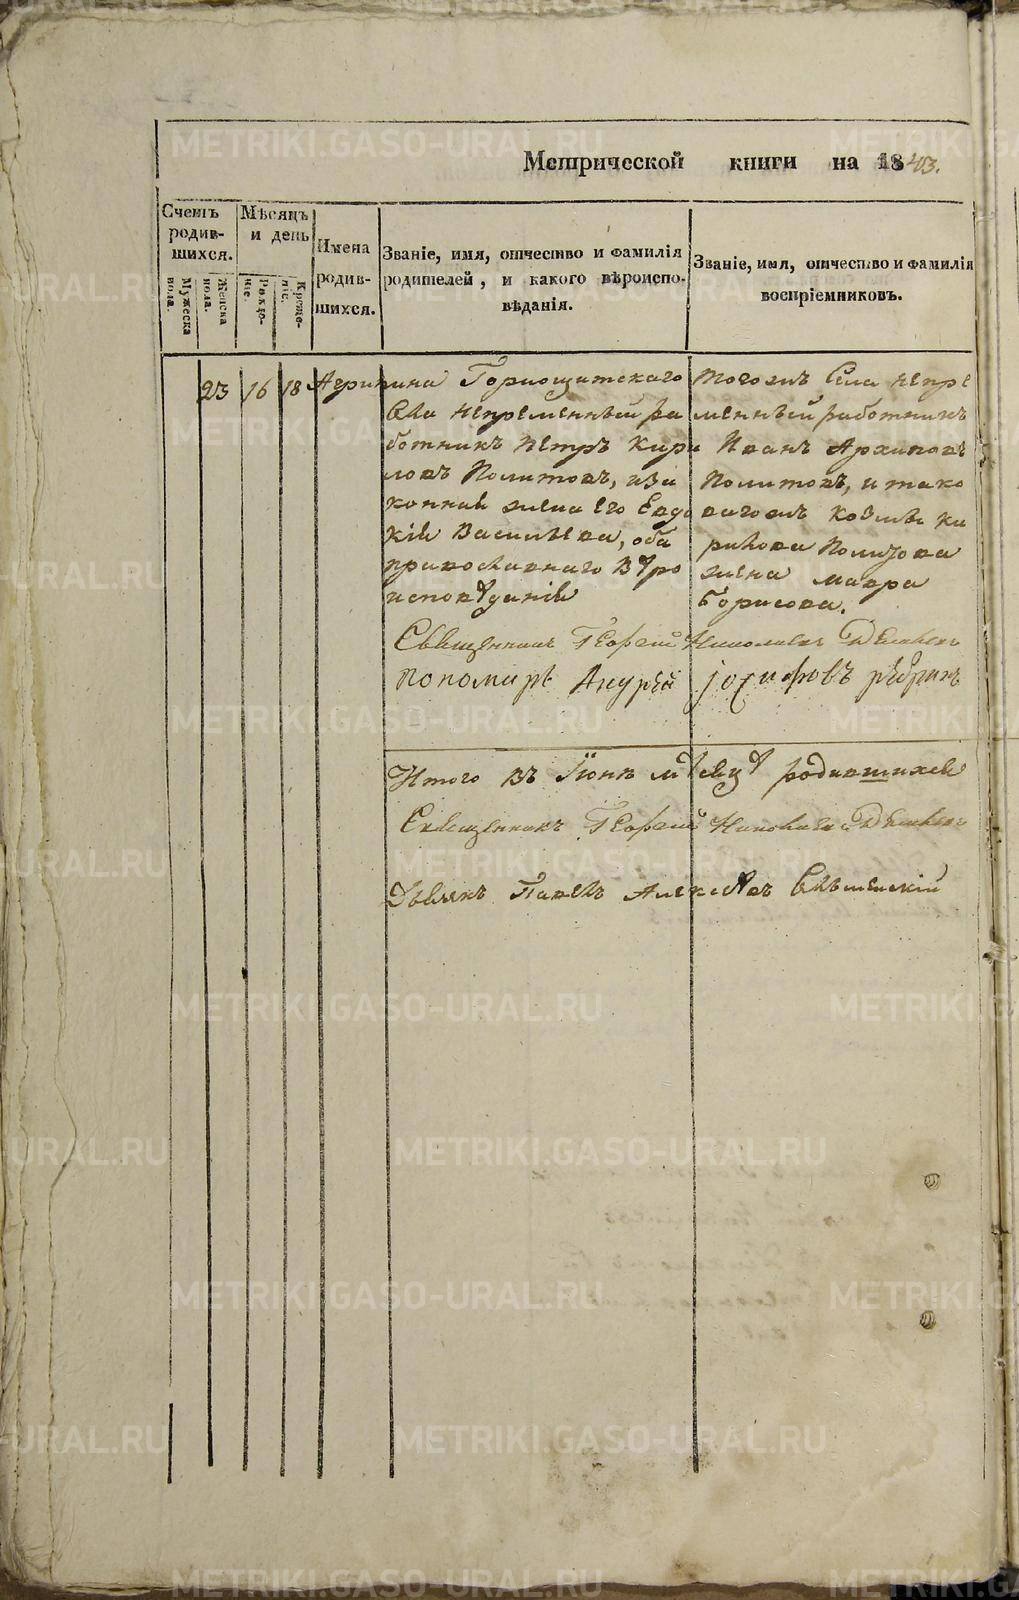 Метрической книги на 1843.
Счетъ родив-шихся.
Мужеска пола.
Женска пола.
Мѣсяцъ и день
Рожде-ніе.
Креще-ніе.
Имена родив-шихся.
Званіе, имя, отчество и фамилія
родителей, и какого вѣроиспо-
вѣданія.
Званіе, имя, отчество и фамилія
воспріемниковъ.
23 16 18 Агрипина
Горнощитскаго
села непременный ра
ботникъ Петръ Кири
ловъ Политовъ, иза
конная жена его Евдо
кія Васильева, оба
православнаго вѣро
исповѣданія
Тогожъ села непре
менный работникъ
Иванъ Архиповъ
Политовъ, и тако
вагожъ Козмы Ки
рилова Политова
жена Мавра
Борисова.
Священникъ Георгій Николаевъ
Пономарь Андрей
Итого въ Іюнѣ мѣсяцѣ родившихся
Священникъ Георгій Николаевъ
Дьяконъ Павелъ Алексѣевъ
METRIKI.GASO-URAL.RU